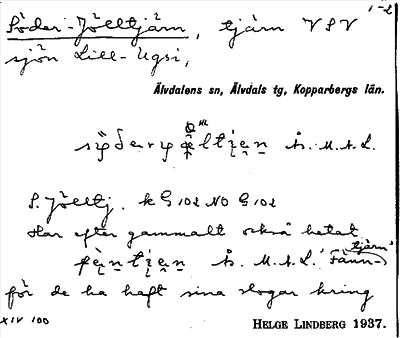 1-2
Söder-Jölltjärn, tjärn VSV
sjön Lill-Ugsi,
Älvdalens sn, Älvdals tg, Kopparbergs län.
HL
Å. M.A.L.
S. Jölltj. k G 102 NO G 102
Har efter gammalt också hetat
Å. M.A.L. Fänn-tjärn
för de ha haft sina slogar kring
XIV 100
HELGE LINDBERG 1937.